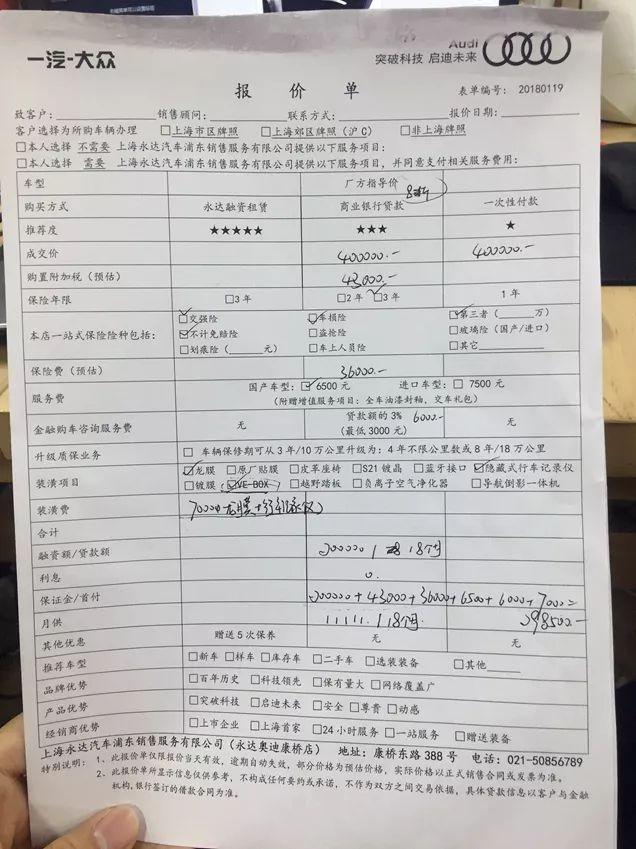 一汽-大众
Audi
突破科技 启迪未来
报 价 单
表单编号: 20180119
致客户: 销售顾问: 联系方式: 报价日期:
客户选择为所购车辆办理 □上海市区牌照 □上海郊区牌照(沪C) □非上海牌照
□本人选择 不需要 上海永达汽车浦东销售服务有限公司提供以下服务项目:
□本人选择 需要 上海永达汽车浦东销售服务有限公司提供以下服务项目, 并同意支付相关服务费用:
车型 厂方指导价
购买方式 永达融资租赁 商业银行贷款 一次性付款
推荐度 ★★★★★ ★★★ ★
成交价 400000.- 400000.-
购置附加税 (预估) 43000.-
保险年限 □3 年 □2 年 □3 年 1 年
本店一站式保险险种包括: □交强险 □车损险 □第三者 (______万)
□不计免赔险 □盗抢险 □玻璃险 (国产/进口)
□划痕险 (______元) □车上人员险 □其它
保险费 (预估) 36000.-
服务费 国产车型: □ 6500 元 进口车型: □ 7500 元
(附赠增值服务项目: 全车油漆封釉, 交车礼包)
金融购车咨询服务费 无 贷款额的 3% 6000.- 无
(最低 3000 元)
升级质保业务 □ 车辆保修期可从 3 年/10 万公里升级为: 4 年不限公里数或 8 年/18 万公里
装潢项目 □龙膜 □原厂贴膜 □皮革座椅 □S21 镀晶 □蓝牙接口 □隐藏式行车记录仪
□镀膜 □VE-BOX □越野踏板 □负离子空气净化器 □导航倒影一体机
装潢费
合计
融资额/贷款额 200000 / 18个月
利息 0.
保证金/首付 200000 + 43000 + 36000 + 6500 + 6000 + 7000 =
298500.-
月供 11111.1 / 18个月.
其他优惠 赠送 5 次保养 无 无
推荐车型 □新车 □样车 □库存车 □二手车 □选装装备 □其他
品牌优势 □百年历史 □科技领先 □保有量大 □网络覆盖广
产品优势 □突破科技 □启迪未来 □安全 □尊贵 □动感
经销商优势 □上市企业 □上海首家 □24 小时服务 □一站服务 □赠送装备
上海永达汽车浦东销售服务有限公司 (永达奥迪康桥店) 地址: 康桥东路 388 号 电话: 021-50856789
特别说明: 1、此报价单仅限报价当天有效, 逾期自动失效, 部分价格为预估价格, 实际价格以正式销售合同或发票为准。
2、此报价单所显示信息仅供参考, 不构成任何要约或承诺, 不作为双方之间交易依据, 具体贷款信息以客户与金融
机构, 银行签订的借款合同为准。